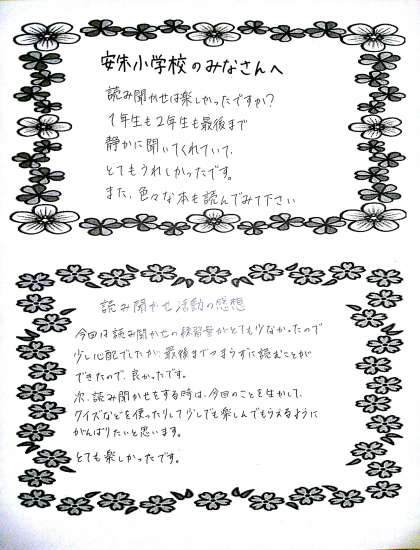 安朱小学校のみなさんへ
読み聞かせは楽しかったですか?
1年生も2年生も最後まで
静かに聞いてくれていて、
とてもうれしかったです。
また、色々な本も読んでみて下さい
読み聞かせ活動の感想
今回は読み聞かせの練習量がとても少なかったので
少し心配でしたが、最後までつまらずに読むことが
できたので、良かったです。
次、読み聞かせをする時は、今回のことを生かして、
クイズなどを使ったりして少しでも楽しんでもらえるように
がんばりたいと思います。
とても楽しかったです。